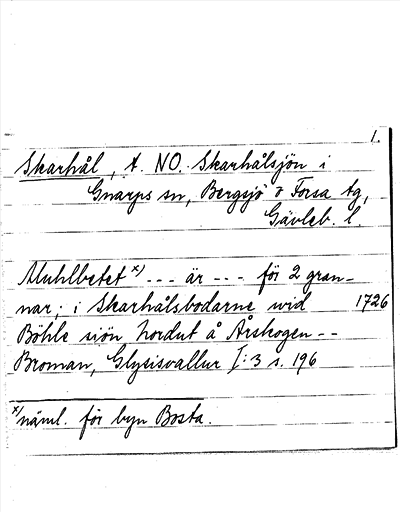 1.
Skarhål, t. NO. Skarhålsjön i
Gnarps sn, Bergsjö o Forsa tg,
Gävleb. l.
Muhlbetet x) --- är --- för 2 gran-
nar; i Skarhålsbodarne wid 1726
Böhle siön hordut å Årskogen --
Broman, Glysisvallur I:3 s. 196
x) näml. för byn Bosta.